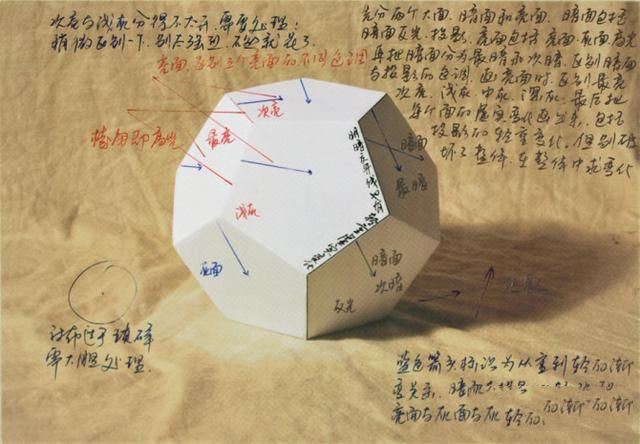 次亮与浅灰分得不太开,要再处理:
稍微区别一下,别太强烈,不然就花了。
先分两个大面,暗面和亮面。暗面包括
暗面反光,投影。亮面包括亮面、灰面、高光
再把暗面分为最暗和次暗,区别暗面
与投影的色调,画亮面时,区别最亮
次亮、浅灰、中灰、深灰,最后把
每个面的虚实变化画出来,包括
投影的轻重变化。但别破
坏了整体,在整体中求变化
亮面,区别三个亮面的不同色调
次亮
棱角即高光
最亮
浅灰
灰面
明暗交界线
暗面
最暗
暗面
次暗
反光
衬布过于琐碎
要大胆处理
蓝色箭头标识为从重到轻的渐
变关系,暗面
亮面与灰面与灰